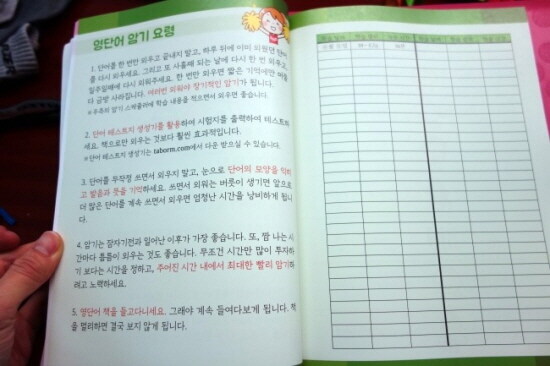 영단어 암기 요령
1. 단어를 한 번만 외우고 끝내지 말고, 하루 뒤에 이미 외웠던 단어
를 다시 외우세요. 그리고 또 사흘째 되는 날에 다시 한 번 외우고,
일주일째에 다시 외워주세요. 한 번만 외우면 짧은 기억에만 머물
다 금방 사라집니다. 여러번 외워야 장기적인 암기가 됩니다.
* 우측의 암기 스케줄러에 학습 내용을 적으면서 외우면 좋습니다.
2. 단어 테스트지 생성기를 활용하여 시험지를 출력하여 테스트하
세요. 책으로만 외우는 것보다 훨씬 효과적입니다.
* 단어 테스트지 생성기는 taborm.com에서 다운 받으실 수 있습니다.
3. 단어를 무작정 쓰면서 외우지 말고, 눈으로 단어의 모양을 익히
고 발음과 뜻을 기억하세요. 쓰면서 외워는 버릇이 생기면 앞으로
더 많은 단어를 계속 쓰면서 외우면 엄청난 시간을 낭비하게 됩니
다.
4. 암기는 잠자기전과 일어난 이후가 가장 좋습니다. 또, 짬 나는 시
간마다 틈틈이 외우는 것도 좋습니다. 무조건 시간만 많이 투자하
기 보다는 시간을 정하고, 주어진 시간 내에서 최대한 빨리 암기하
려고 노력하세요.
5. 영단어 책을 들고다니세요. 그래야 계속 들여다보게 됩니다. 책
을 멀리하면 결국 보지 않게 됩니다.